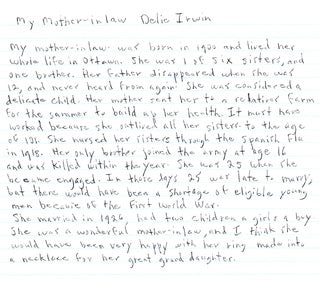 My Mother-in law Delie Irwin
My mother-in law was born in 1900 and lived her
whole life in Ottawa. She was 1 of six sisters, and
one brother. Her father disappeared when she was
12, and never heard from again. She was considered a
delicate child. Her mother sent her to a relatives farm
for the summer to build up her health. It must have
worked because she outlived all her sisters to the age
of 101. She nursed her sisters through the Spanish flu
in 1918. Her only brother joined the army at age 16
and was killed within the year. She was 25 when she
became engaged. In those days 25 was late to marry,
but there would have been a shortage of eligible young
men because of the First World War.
She married in 1926, had two children a girl & a boy
She was a wonderful mother-in law, and I think she
would have been very happy with her ring made into
a necklace for her great grand daughter.